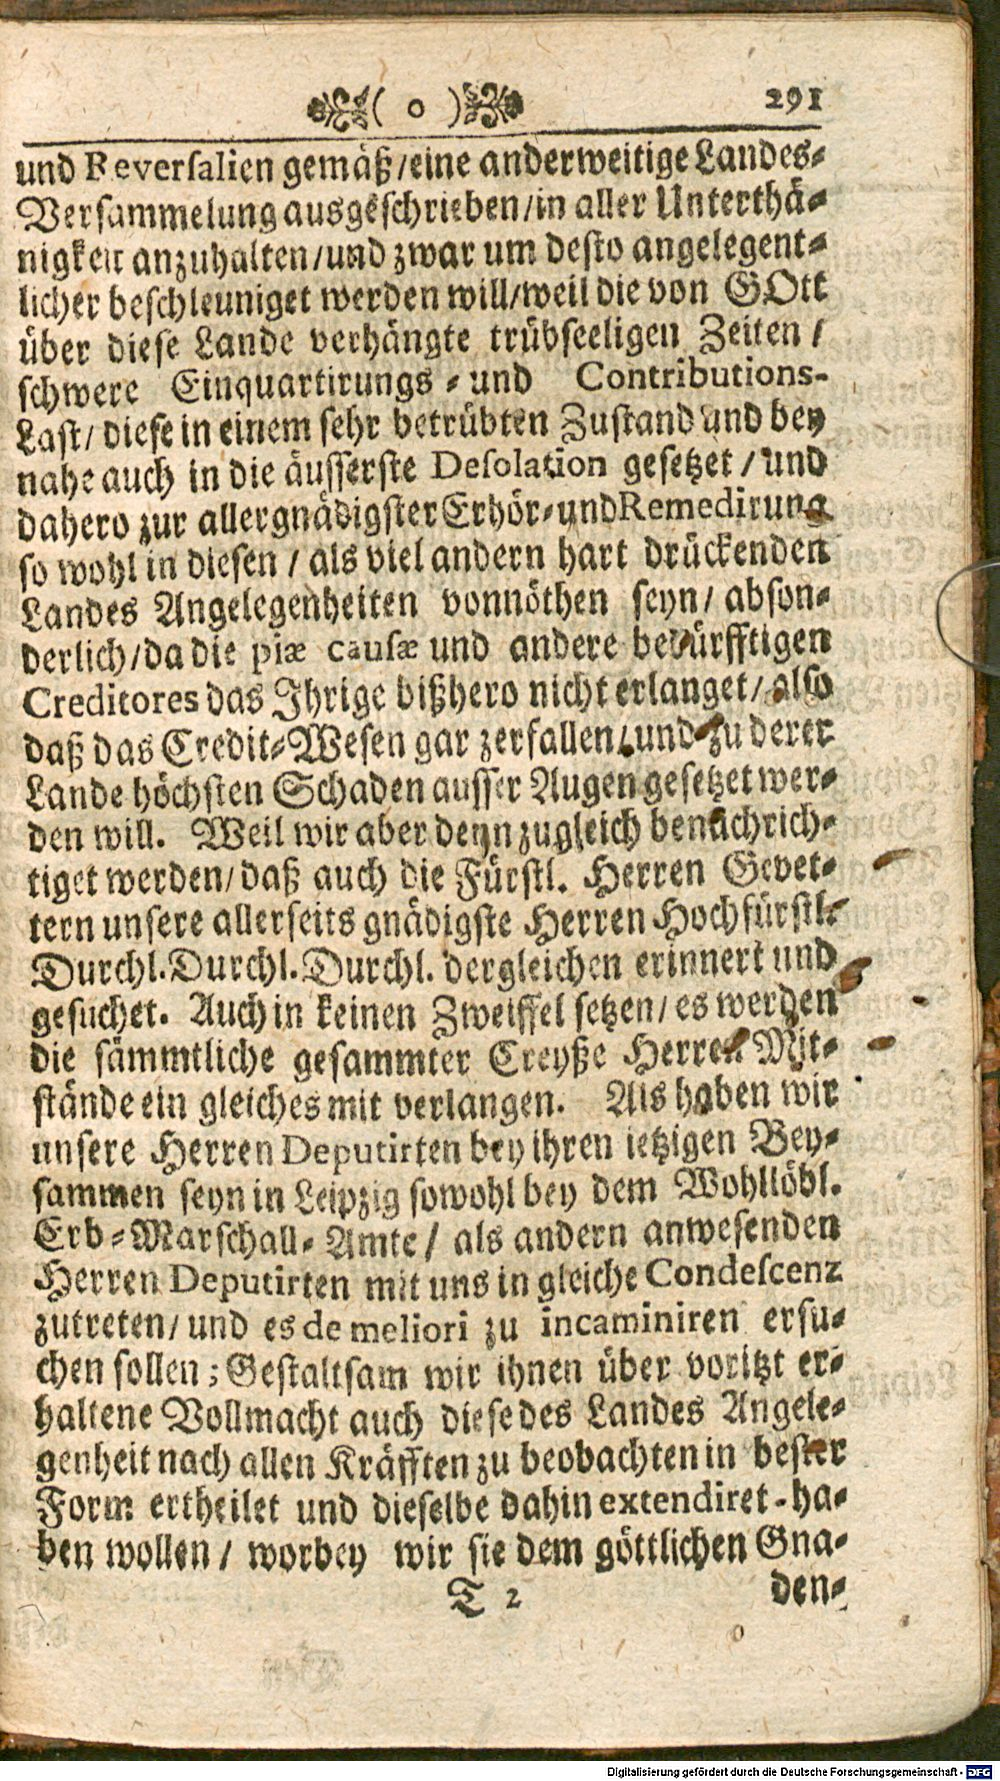 ( o ) 291
und Reversalien gemäß/eine anderweitige Landes-
Versammelung ausgeschrieben/in aller Unterthä-
nigkeit anzuhalten/und zwar um desto angelegent-
licher beschleuniget werden will/weil die von GOtt
über diese Lande verhängte trübseeligen Zeiten /
schwere Einquartirungs - und Contributions-
Last/ diese in einem sehr betrübten Zustand und bey
nahe auch in die äusserste Desolation gesetzet / und
dahero zur allergnädigster Erhör- und Remedirung
so wohl in diesen / als viel andern hart drückenden
Landes Angelegenheiten vonnöthen seyn/ abson-
derlich/da die piæ causæ und andere bedürfftigen
Creditores das Ihrige bißhero nicht erlanget/ also
daß das Credit-Wesen gar zerfallen/ und zu derer
Lande höchsten Schaden ausser Augen gesetzet wer-
den will. Weil wir aber deyn zugleich benachrich-
tiget werden/daß auch die Fürstl. Herren Gevet-
tern unsere allerseits gnädigste Herren Hochfürstl.
Durchl. Durchl. Durchl. dergleichen erinnert und
gesuchet. Auch in keinen Zweiffel setzen/ es werden
die sämmtliche gesammter Creyße Herren Mit-
stände ein gleiches mit verlangen. Als haben wir
unsere Herren Deputirten bey ihren ietzigen Bey-
sammen seyn in Leipzig sowohl bey dem Wohllöbl.
Erb-Marschall-Amte/ als andern anwesenden
Herren Deputirten mit uns in gleiche Condescenz
zutreten/ und es de meliori zu incaminiren ersu-
chen sollen; Gestaltsam wir ihnen über voritzt er-
haltene Vollmacht auch diese des Landes Angele-
genheit nach allen Kräfften zu beobachten in bester
Form ertheilet und dieselbe dahin extendiret-ha-
ben wollen / worbey wir sie dem göttlichen Gna-
T 2 den-
Digitalisierung gefördert durch die Deutsche Forschungsgemeinschaft - DFG